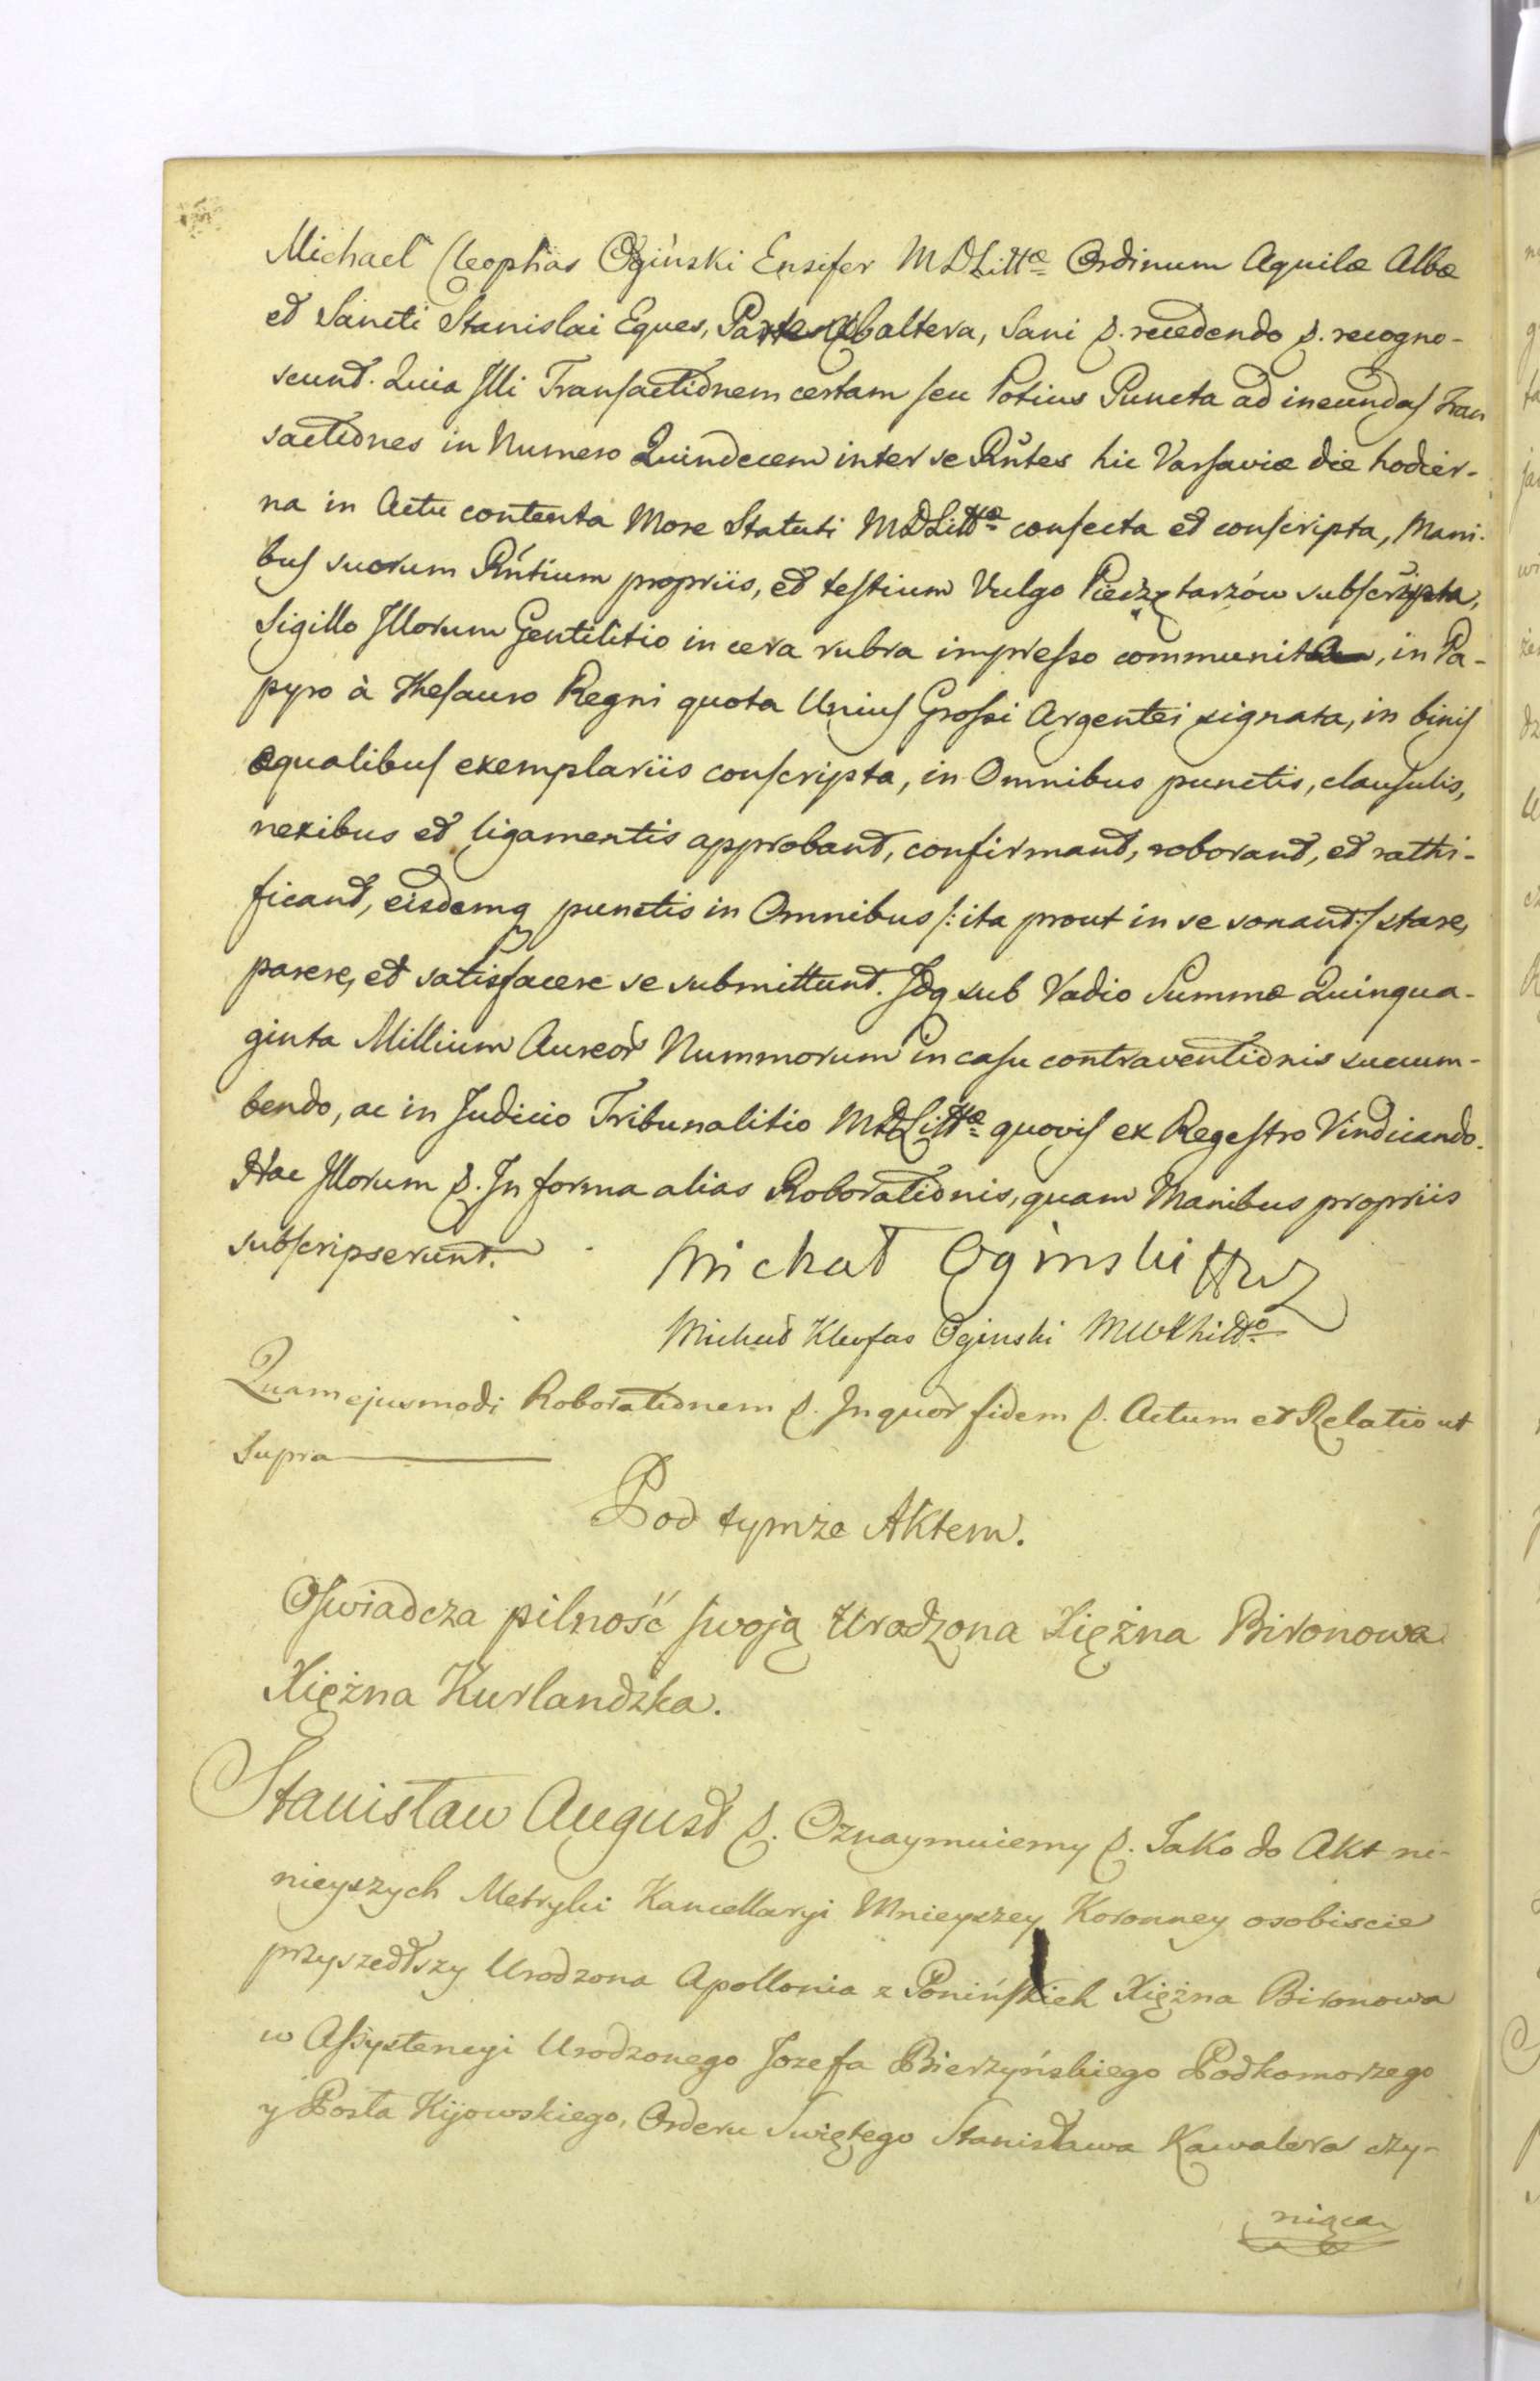 Michael Cleophas Ogiński Ensifer MDLittæ Ordinum Aquilæ Albæ
et Sancti Stanislai Eques, Partes ab altera, Sani p. recedendo p. recogno-
scunt. Quia Illi Transactionem certam seu Potius Puncta ad ineundas Tran
sactiones in Numero Quindecem inter se Rñtes hic Varsaviæ die hodier-
na in Actu contenta More Statuti MDLittæ confecta et conscripta, Mani-
bus suorum Rñtium propriis, et testium Vulgo Pieczętarzów subscripta,
Sigillo Illorum Gentilitio in cera rubra impresso communita, in Pa-
pyro à Thesauro Regni quota Unius Grossi Argentei signata, in binis
æqualibus exemplariis conscripta, in Omnibus punctis, clausulis,
nexibus et ligamentis approbant, confirmant, roborant, et rathi-
ficant, eisdemq punctis in Omnibus /: ita prout in se sonant :/ stare,
parere, et satisfacere se submittunt. Idq sub Vadio Summæ Quinqua-
ginta Millium Aureor Nummorum in casu contraventionis succum-
bendo, ac in Judicio Tribunalitio MDLittæ quovis ex Regestro Vindicando.
Hac Illorum p. In forma alias Roborationis, quam Manibus propriis
subscripserunt.
Michał Oginski HWL
Michał Kleofas Oginski MWXhitto
Quam ejusmodi Roborationem p. In quor fidem p. Actum et Relatio ut
Supra
Pod tymże Aktem.
Oswiadcza pilność swoją Urodzona Xiężna Bironowa
Xiężna Kurlandzka.
Stanisław August p. Oznaymuiemy p. Jako do Akt ni-
nieyszych Metryki Kancellaryi Mnieyszey Koronney osobiscie
przyszedłszy Urodzona Apollonia z Ponińskich Xiężna Bironowa
w Assystencyi Urodzonego Jozefa Bierzyńskiego Podkomorzego
y Posła Kijowskiego, Orderu Swiętego Stanisława Kawalera czy-
niąca